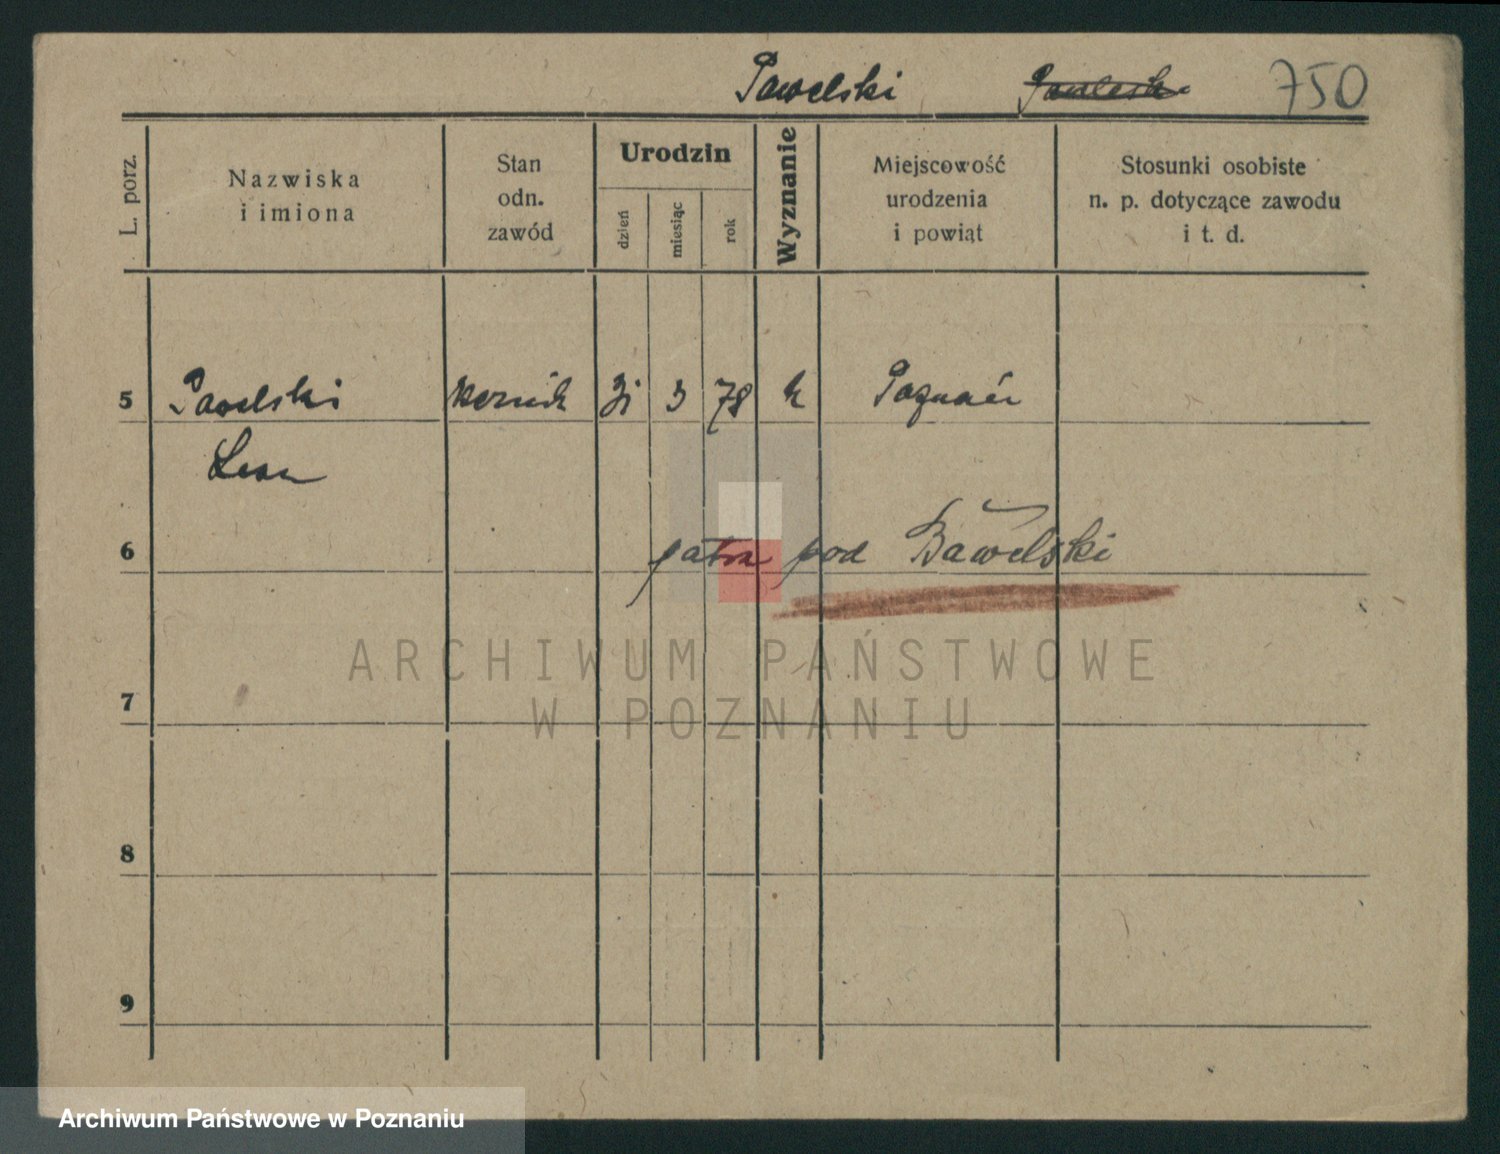 Pawelski 750
L. porz.
Nazwiska
i imiona
Stan
odn.
zawód
Urodzin
dzień
miesiąc
rok
Wyznanie
Miejscowość
urodzenia
i powiąt
Stosunki osobiste
n. p. dotyczące zawodu
i t. d.
5 Pawelski 3 78 k Poznań
Leon
6 patrz pod Bawelski
7
8
9
ARCHIWUM PAŃSTWOWE
W POZNANIU
Archiwum Państwowe w Poznaniu